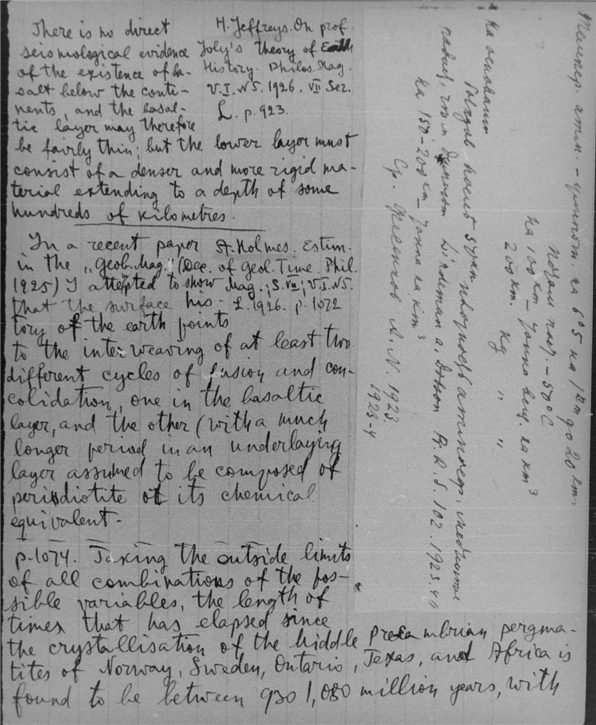 There is no direct
seismological evidence
of the existence of ba-
salt below the conti-
nents, and the basal-
tic layer may therefore
be fairly thin; but the lower layer must
consist of a denser and more rigid ma-
terial extending to a depth of some
hundreds of kilometres.
H. Jeffreys. On prof.
Joly's theory of Earth
History. Philos. Mag.
V. I. N5. 1926. VII Ser.
L. p. 923.
In a recent paper
in the „Geol. Mag." (Dec.
1925) I attepted to show
that the surface his-
tory of the earth points
to the interweaving of at least two
different cycles of fusion and con-
colidation, one in the basaltic
layer, and the other (with a much
longer period in an underlaying
layer assumed to be composed of
peridiotite ot its chemical
equivalent.-
A. Holmes. Estim.
of Geol. Time. Phil.
Mag., S. VII; V. I. N5.
L. 1926. p. 1072
p. 1074. Taxing the outside limits
of all combinations of the pos-
sible variables, the length of
times that has elapsed since
the crystallisation of the hiddle precambrian pergma-
tites of Norway, Sweden, Ontario, Texas, and Africa is
found to be between 930 1,080 million years, with
на 6°5 на 1 km до 20 km.
на 100 km
200 km.
На основании
на 150-200 km
Lindeman a. Dobson P. R. S. 102. 1923.
Ср. А. Н. 1923
1923-4